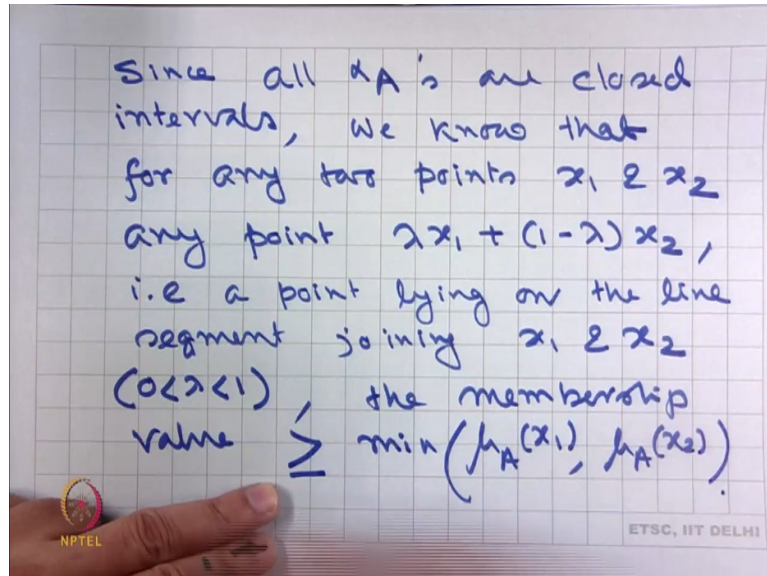 Since all αA's are closed
intervals, we know that
for any two points x₁ & x₂
any point λx₁ + (1-λ)x₂,
i.e a point lying on the line
segment joining x₁ & x₂
(0<λ<1), the membership
value ≥ min(μA(x₁), μA(x₂)).
NPTEL
ETSC, IIT DELHI